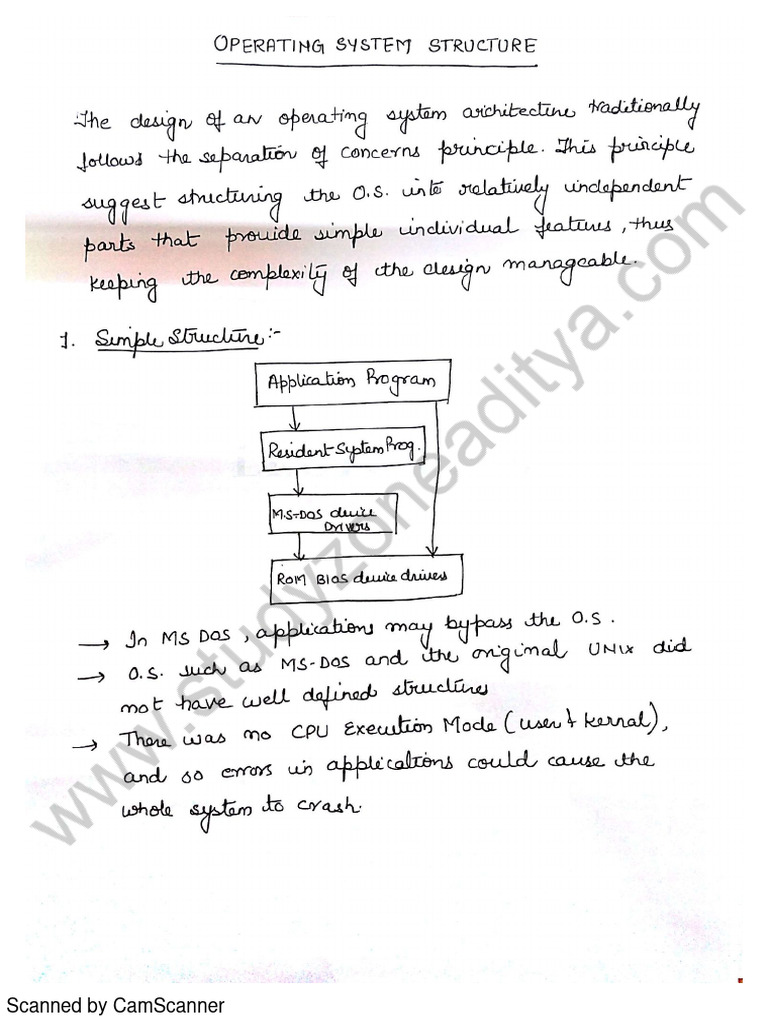 OPERATING SYSTEM STRUCTURE
The design of an operating system architecture traditionally
follows the separation of concerns principle. This principle
suggest structuring the O.S. into relatively independent
parts that provide simple individual features, thus
keeping the complexity of the design manageable.
1. Simple Structure:-
Application Program
Resident System Prog.
M.S-DOS device
Drivers
ROM BIOS device drivers
→ In MS DOS, applications may bypass the O.S.
→ O.S. such as MS-DOS and the original UNIX did
not have well defined structures
→ There was no CPU Execution Mode (user & kernal),
and so errors in applications could cause the
whole system to crash.
www.studyzoneaditya.com
Scanned by CamScanner